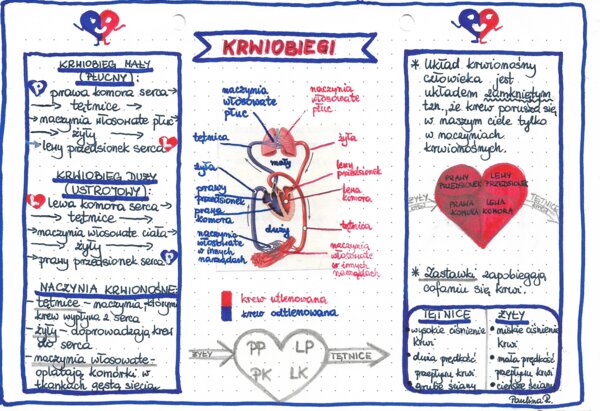 KRWIOBIEG MAŁY
(PŁUCNY):
P
prawa komora serca →
→ tętnice →
→ naczynia włosowate płuc
→ żyły →
→ lewy przedsionek serca
L
KRWIOBIEG DUŻY
(USTROJOWY):
L
lewa komora serca →
→ tętnice →
→ naczynia włosowate ciała
→ żyły →
→ prawy przedsionek serca
P
NACZYNIA KRWIONOŚNE:
- tętnice - naczynia, którymi
krew wypływa z serca
- żyły - doprowadzają krew
do serca
- naczynia włosowate -
oplatają komórki w
tkankach gęstą siecią
KRWIOBIEGI
naczynia
włosowate
płuc
naczynia
włosowate
płuc
tętnica
żyła
mały
żyła
lewy
przedsionek
prawy
przedsionek
lewa
komora
prawa
komora
duży
tętnica
naczynia
włosowate
w innych
narządach
naczynia
włosowate
w innych
narządach
krew utlenowana
krew odtlenowana
ŻYŁY
PP LP
PK LK
TĘTNICE
* Układ krwionośny
człowieka jest
układem zamkniętym
tzn, że krew porusza się
w naszym ciele tylko
w naczyniach
krwionośnych.
PRAWY
PRZEDSIONEK
LEWY
PRZEDSIONEK
PRAWA
KOMORA
LEWA
KOMORA
ŻYŁY
TĘTNICE
* Zastawki zapobiegają
cofaniu się krwi.
TĘTNICE
• wysokie ciśnienie
krwi
• duża prędkość
przepływu krwi
• grube ściany
ŻYŁY
• niskie ciśnienie
krwi
• mała prędkość
przepływu krwi
• cieńsze ściany
Paulina R.